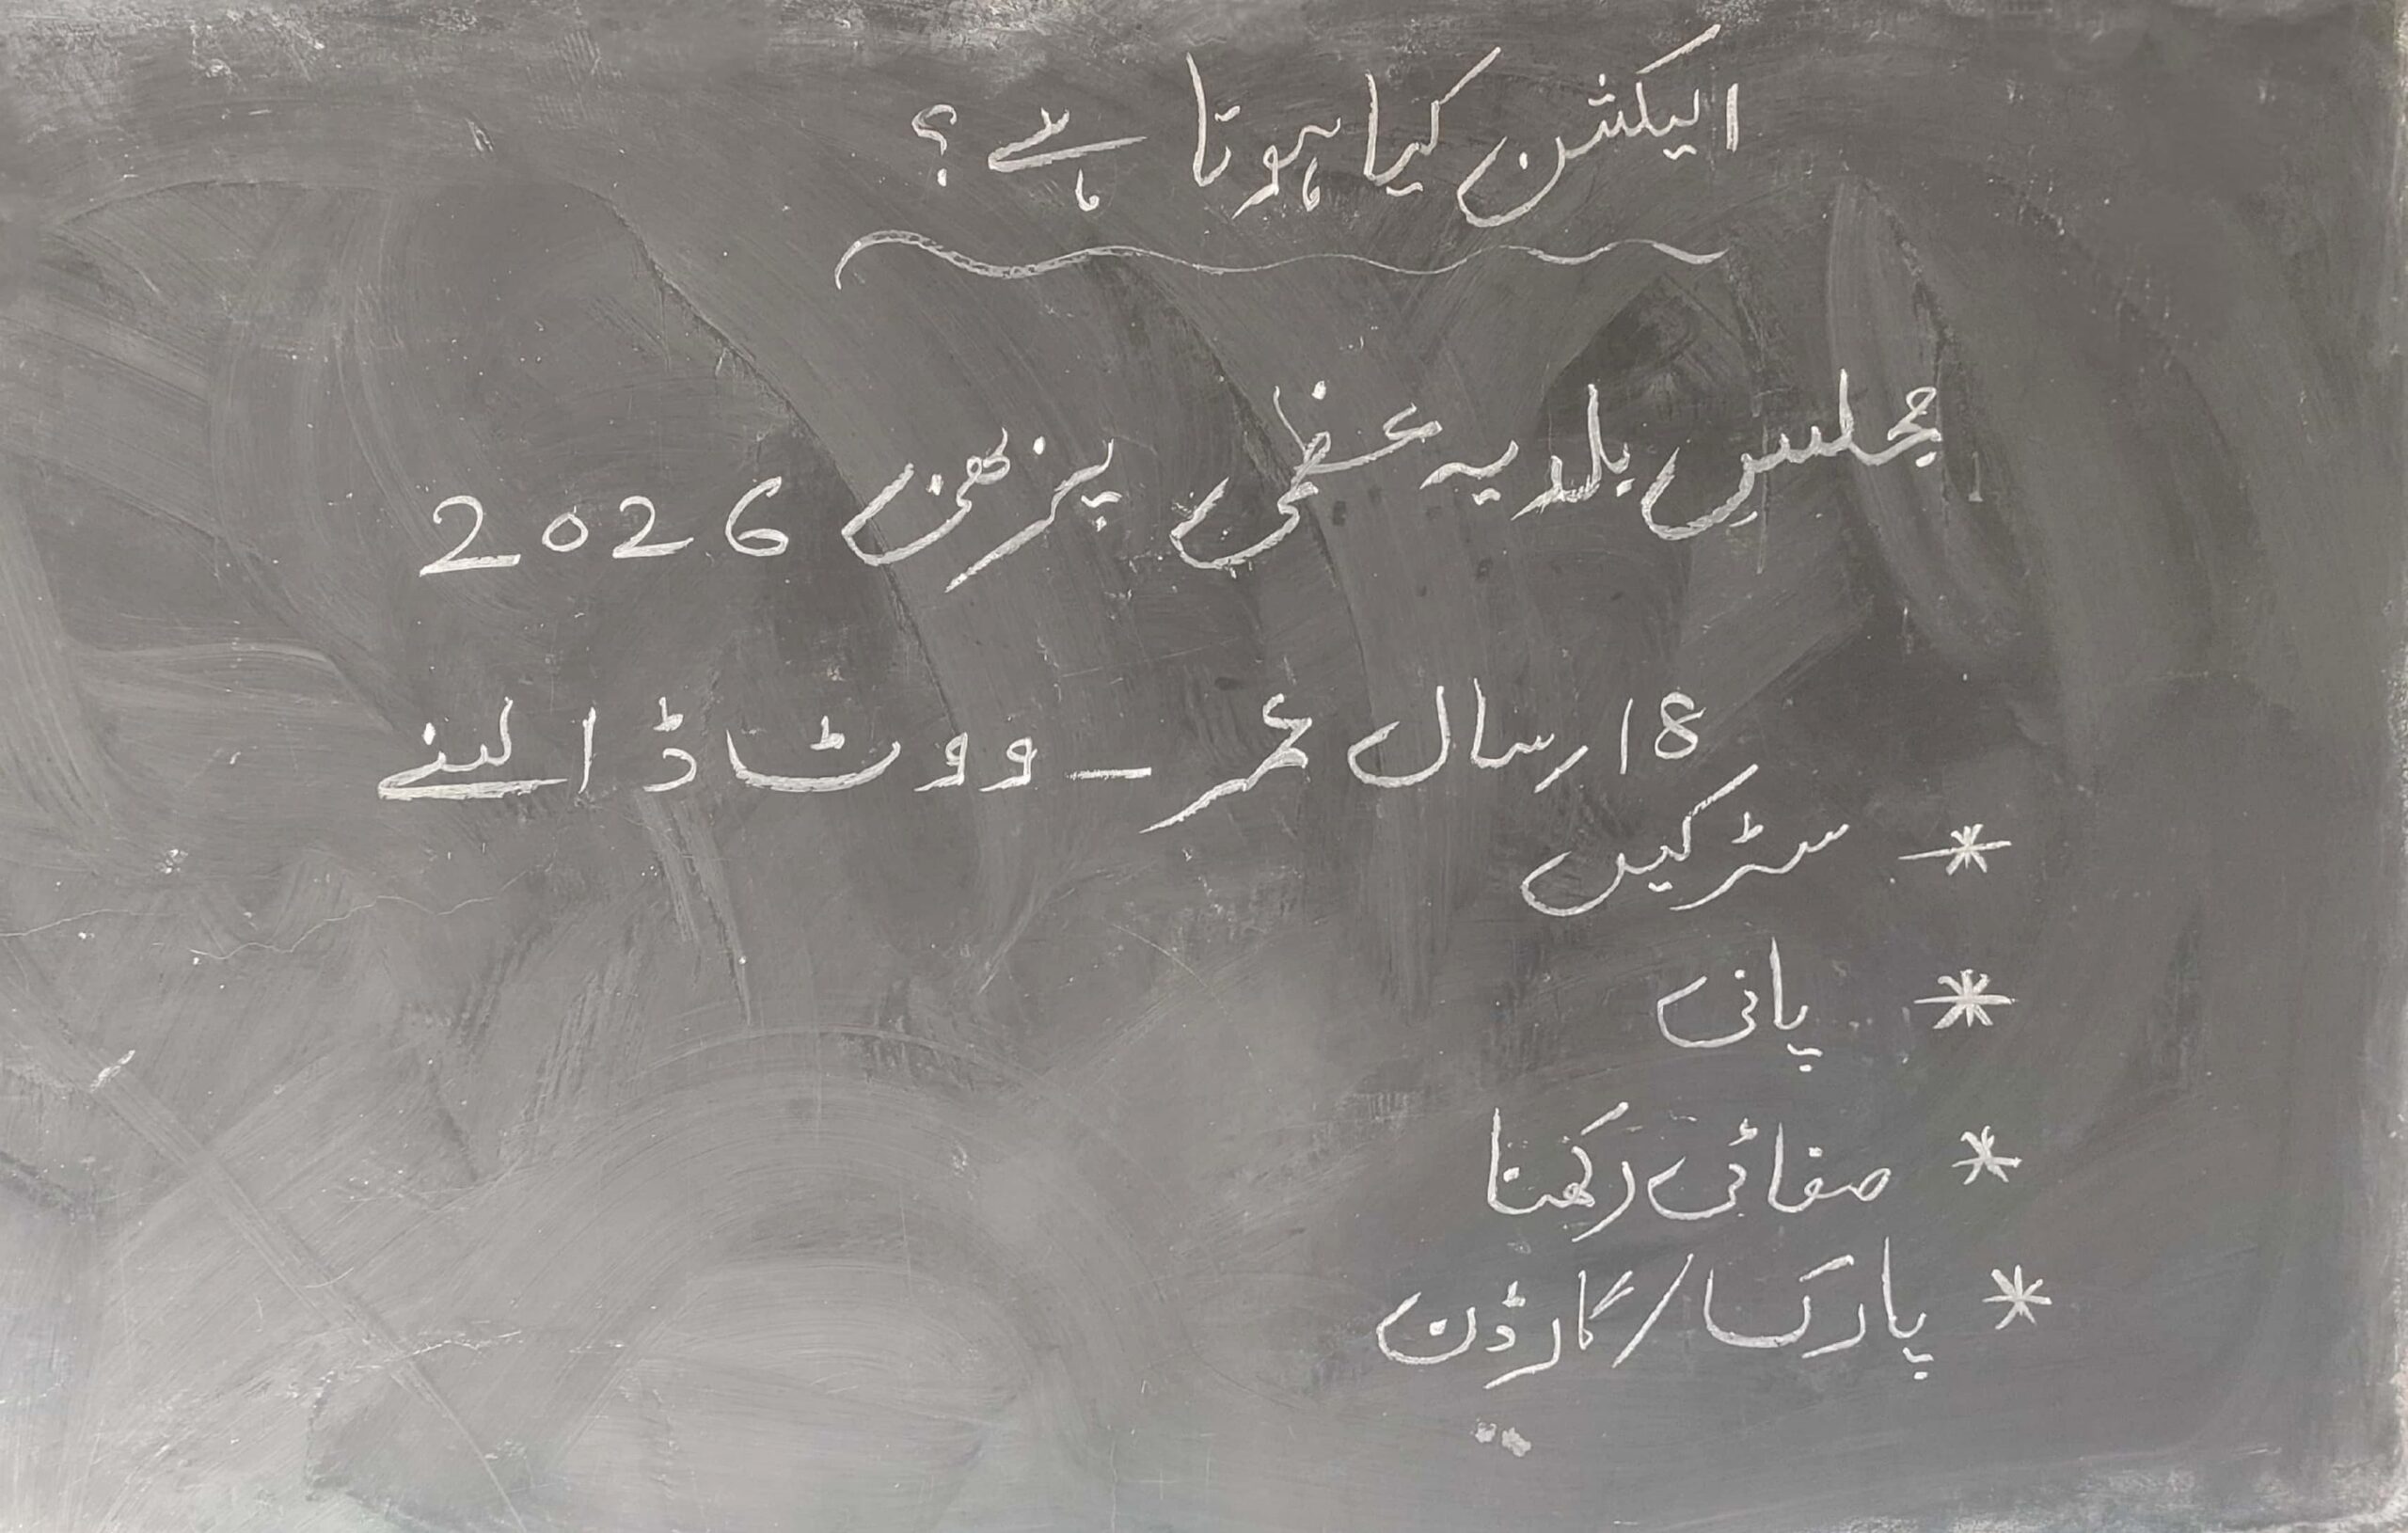 الیکشن کیا ہوتا ہے؟
مجلسِ بلدیہ عظمی پربھنی 2026
18 سال عمر - ووٹ ڈالنے
* سڑکیں
* پانی
* صفائی رکھنا
* پارک/گارڈن